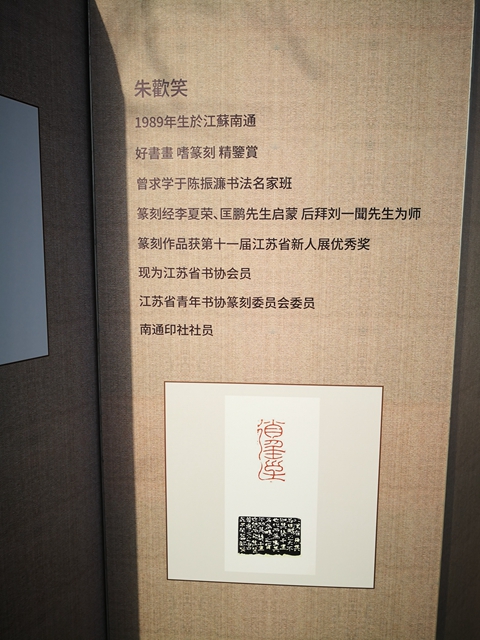 朱歡笑
1989年生於江蘇南通
好書畫 嗜篆刻 精鑒賞
曾求学于陈振濂书法名家班
篆刻经李夏荣、匡鹏先生启蒙 后拜刘一聞先生为师
篆刻作品获第十一届江苏省新人展优秀奖
现为江苏省书协会员
江苏省青年书协篆刻委员会委员
南通印社社员